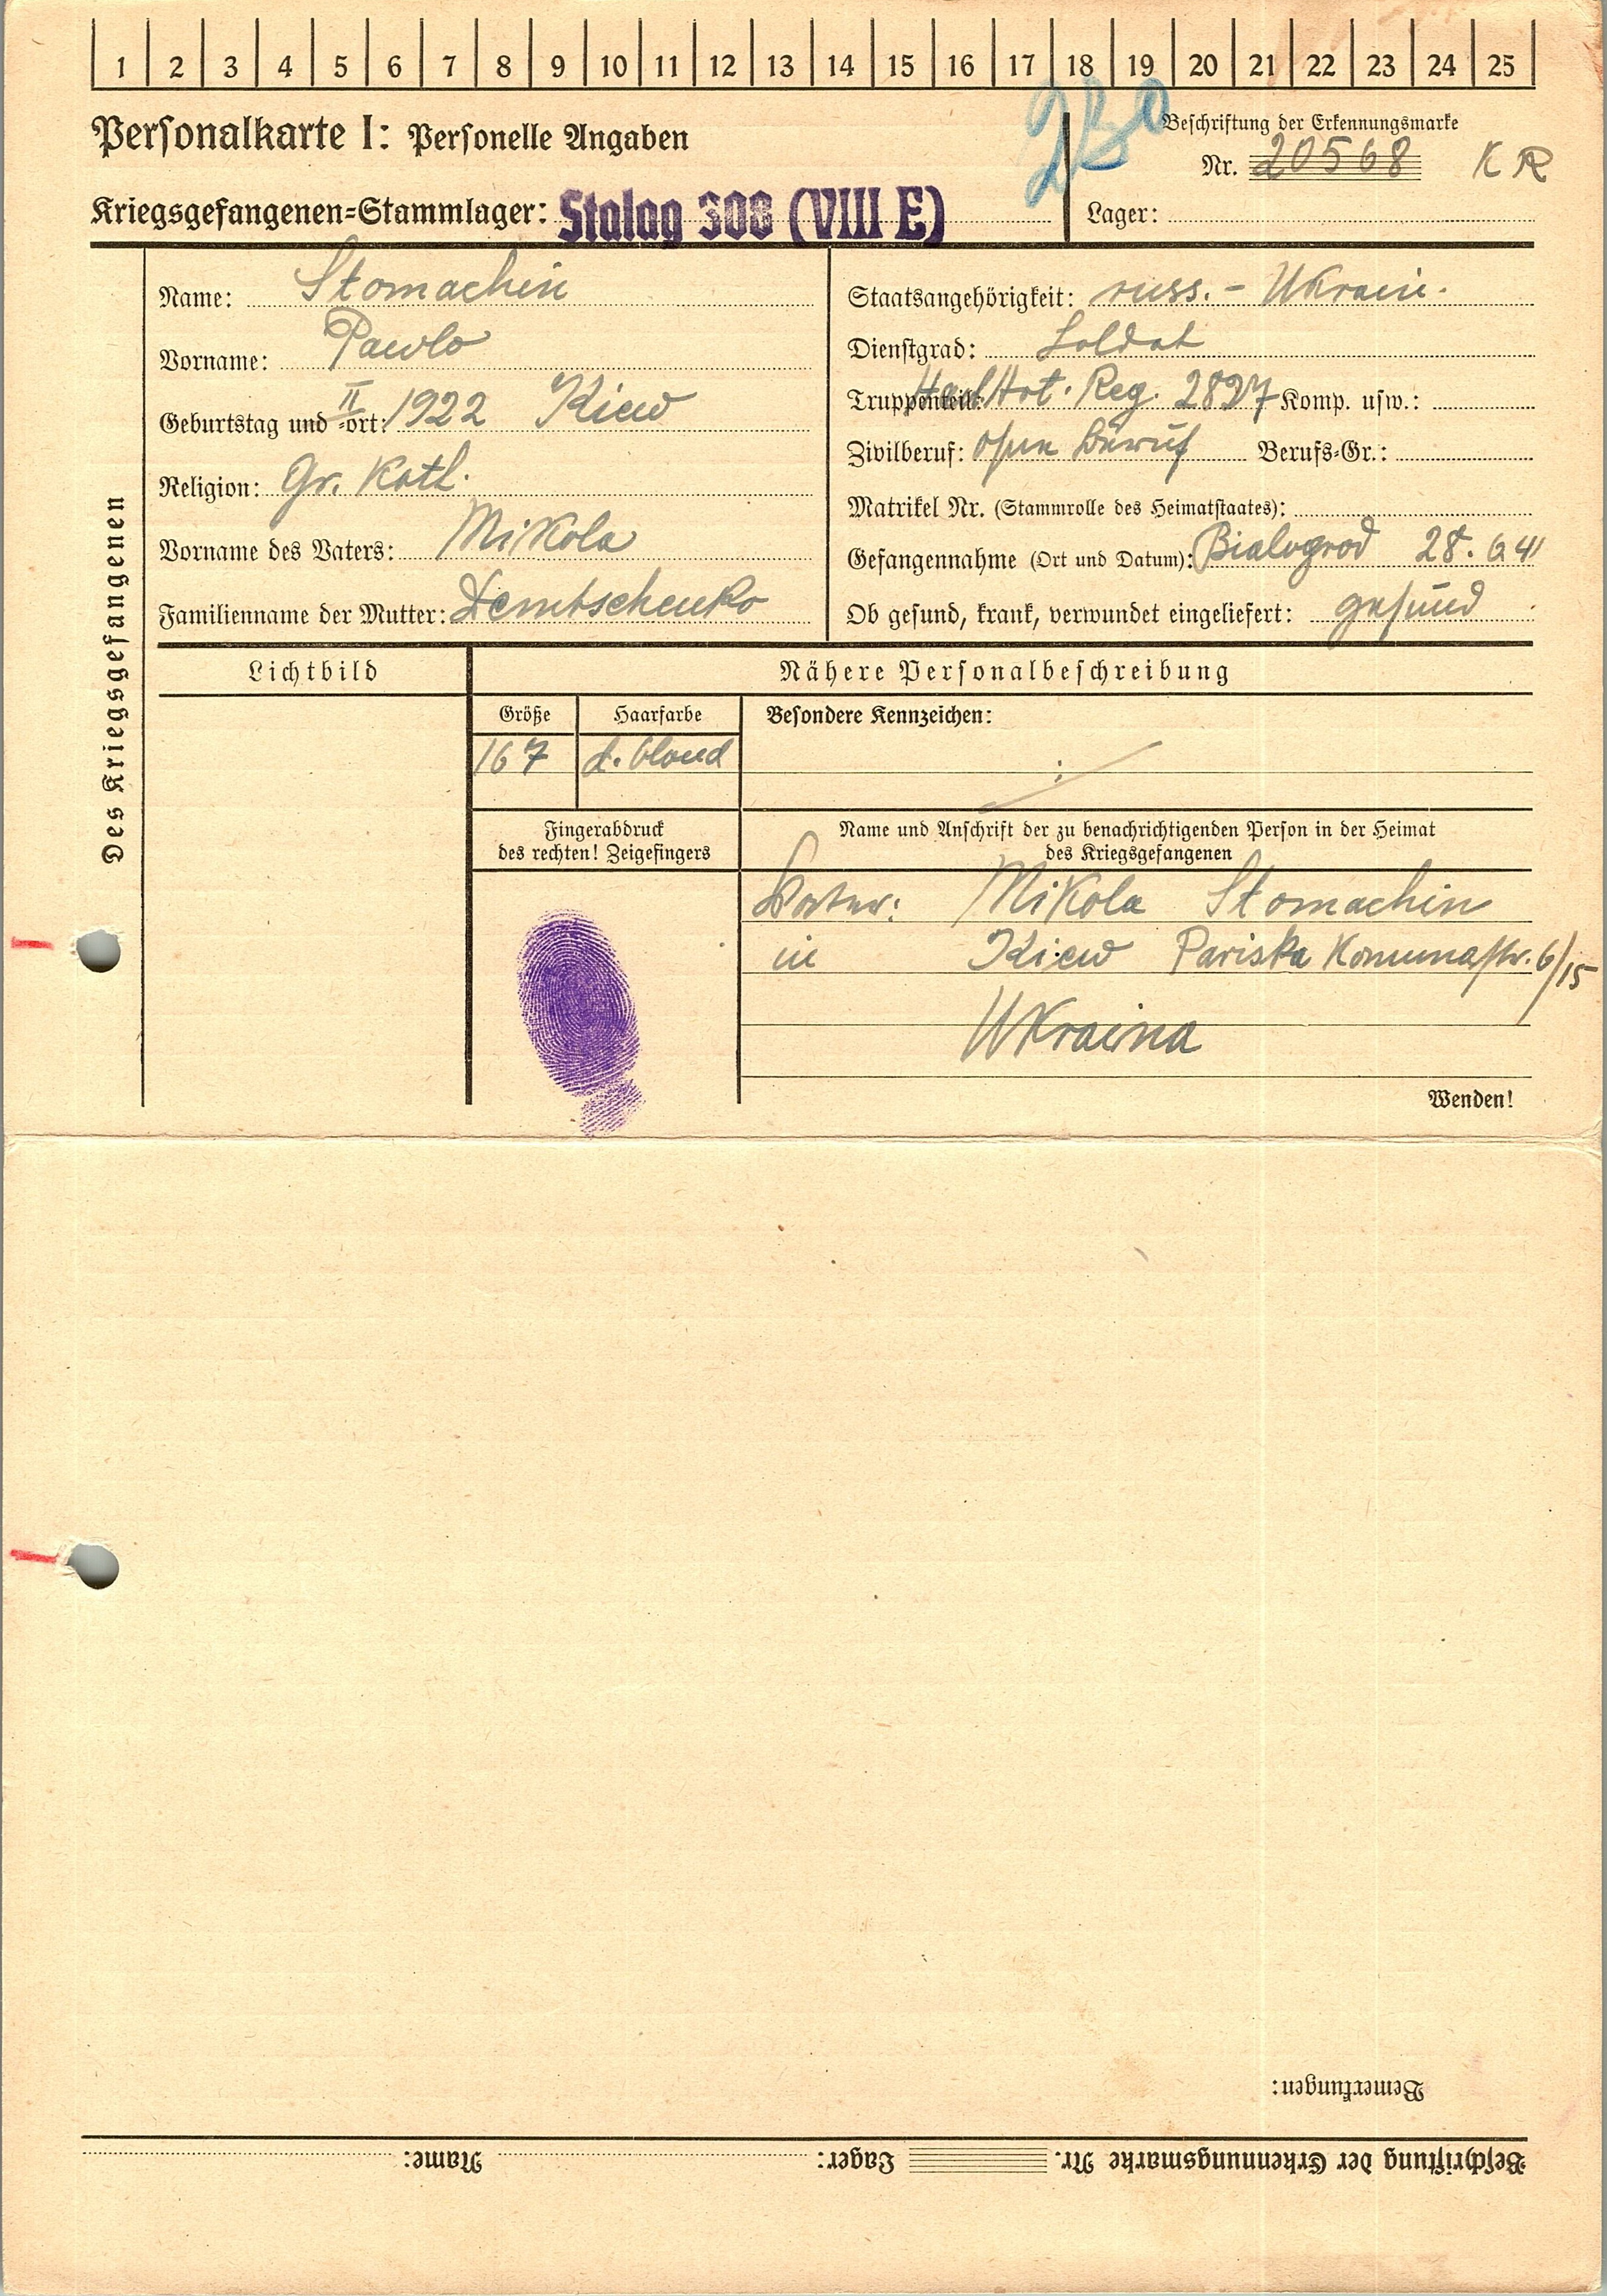 1 2 3 4 5 6 7 8 9 10 11 12 13 14 15 16 17 18 19 20 21 22 23 24 25
Personalkarte I: Personelle Angaben
Beschriftung der Erkennungsmarke
Nr. 20568 K R
Kriegsgefangenen-Stammlager: Stalag 308 (VIII E)
Lager:
Des Kriegsgefangenen
Name: Stomachin
Vorname: Pawlo
Geburtstag und -ort: II 1922 Kiew
Religion: Gr. Kath.
Vorname des Vaters: Mikola
Familienname der Mutter: Demtschenko
Staatsangehörigkeit: russ. - Ukrain.
Dienstgrad: Soldat
Truppenteil: Art. Reg. 2897 Komp. usw.:
Zivilberuf: ohne Beruf Berufs-Gr.:
Matrikel Nr. (Stammrolle des Heimatstaates):
Gefangennahme (Ort und Datum): Bialogrod 28. 6 41
Ob gesund, krank, verwundet eingeliefert: gesund
Lichtbild
Nähere Personalbeschreibung
Größe Haarfarbe Besondere Kennzeichen:
167 d. blond
Fingerabdruck
des rechten! Zeigefingers
Name und Anschrift der zu benachrichtigenden Person in der Heimat
des Kriegsgefangenen
Vater: Mikola Stomachin
in Kiew Pariska Komunastr. 6/15
Ukraina
Wenden!
Bemerkungen:
Beschriftung der Erkennungsmarke Nr. Lager: Name: